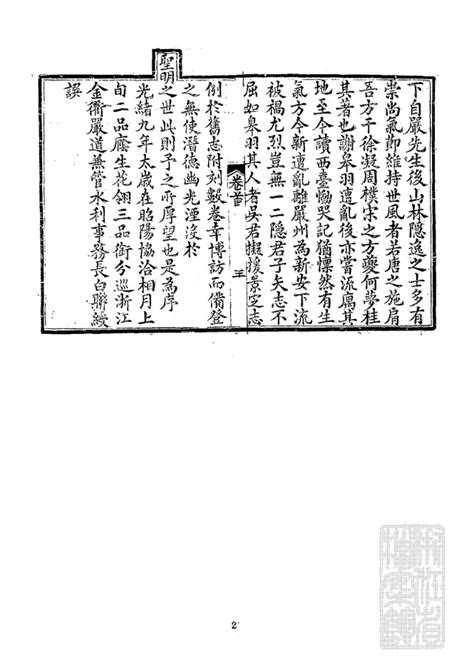 下自嚴先生後山林隱逸之士多有
崇尚氣節維持世風者若唐之施肩
吾方干徐凝周樸宋之方夔何夢桂
其著也謝皋羽遭亂後亦嘗流寓其
地至今讀西臺慟哭記猶懍然有生
氣方今新遭亂離嚴州為新安下流
被禍尤烈豈無一二隱君子矢志不
屈如皋羽其人者吳君擬援景定志
卷首
三
例於舊志附刻數卷幸博訪而備登
之無使潛德幽光湮沒於
聖明之世此則予之所厚望也是為序
光緒九年太歲在昭陽協洽相月上
旬二品廕生花翎三品銜分巡浙江
金衢嚴道兼管水利事務長白聯綬
譔
2